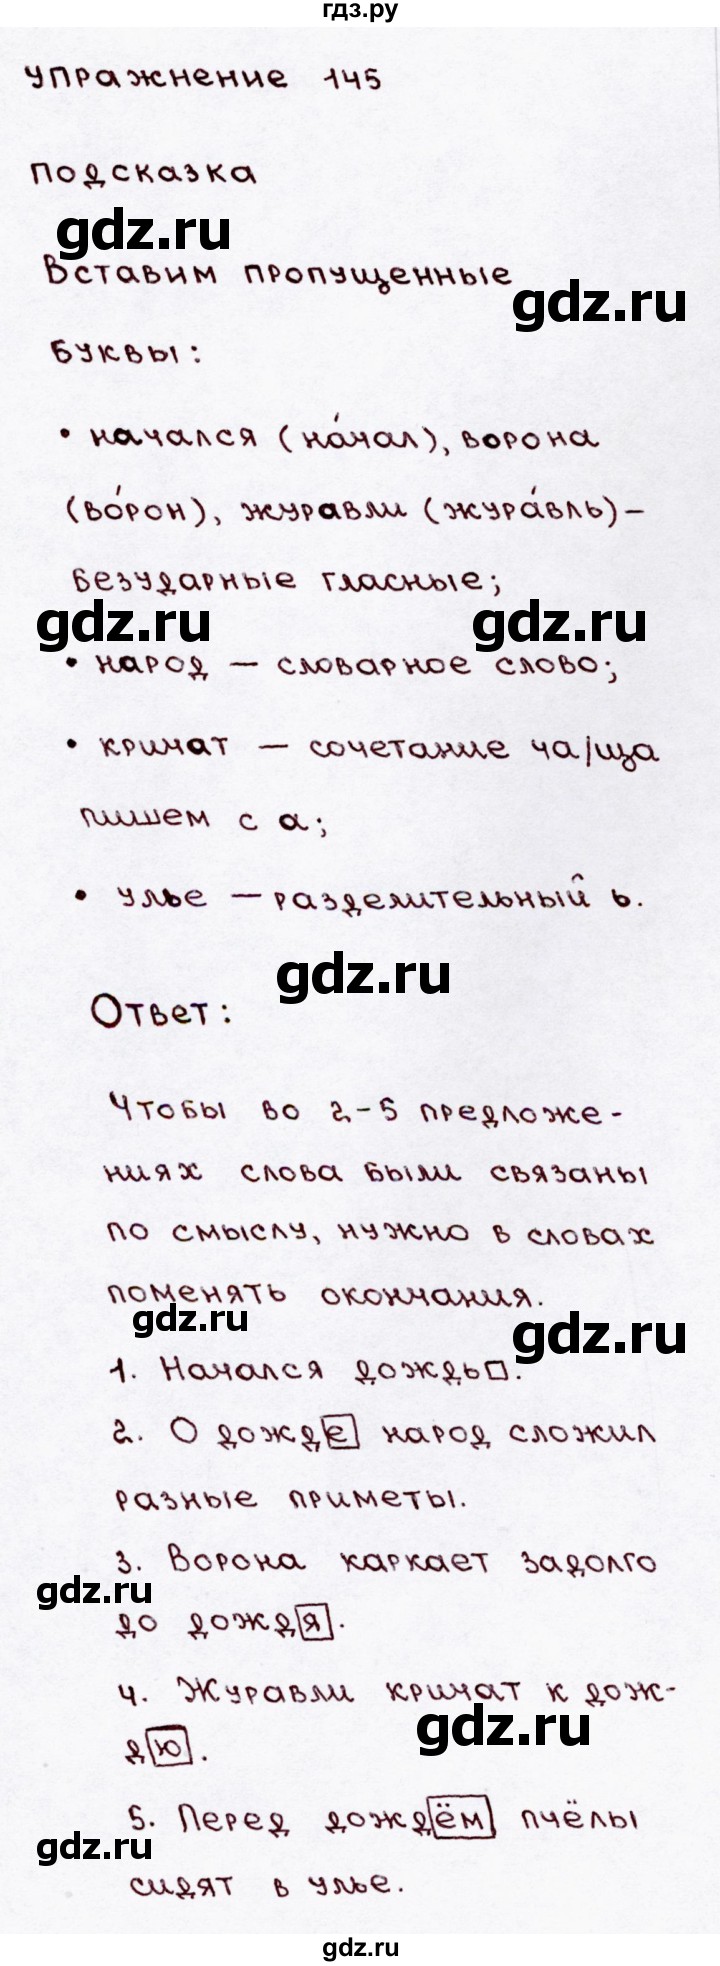 гдз.ру
упражнение 145
подсказка
gdz.ru
Вставим пропущенные
gdz.ru
буквы:
• начался (на́чал), ворона
(во́рон), журавли (жура́вль) –
безударные гласные;
gdz.ru gdz.ru
• народ – словарное слово;
• кричат – сочетание ча/ща
пишем с а;
• улье – разделительный ь.
gdz.ru
Ответ:
Чтобы во 2-5 предложе-
ниях слова были связаны
по смыслу, нужно в словах
поменять окончания.
gdz.ru gdz.ru
1. Начался дождь□.
2. О дожде народ сложил
разные приметы.
3. Ворона каркает задолго
gdz.ru
до дождя.
4. Журавли кричат к дож-
gdz.ru
дю.
5. Перед дождём пчёлы
gdz.ru
сидят в улье.
gdz.ru